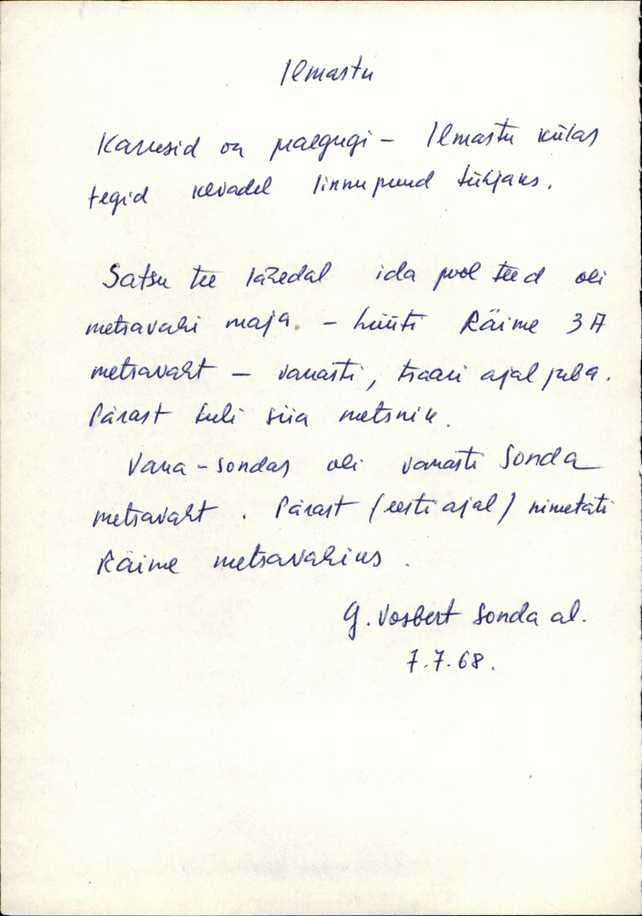 Ilmastu
Karusid on praegugi – Ilmastu külas
tegid kevadel linnupuud tühjaks.
Satsu tee lähedal ida pool teed oli
metsavahi maja. – hüüti Räime 3A
metsavaht – vanasti, tsaari ajal juba.
Pärast tuli siia metsnik.
Vana-Sondas oli vanasti Sonda
metsavaht. Pärast (eesti ajal) nimetati
Räime metsavahiks.
G. Vosbert Sonda al.
7.7.68.